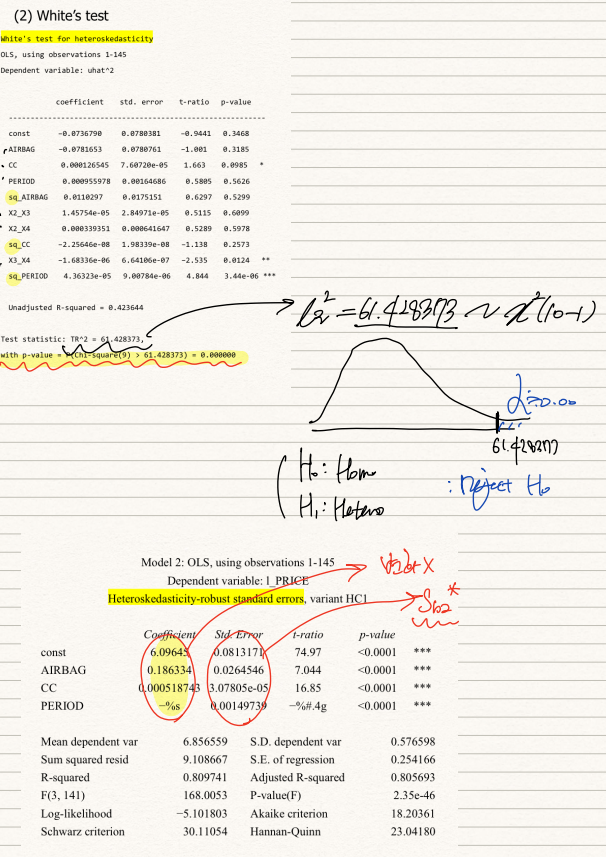 (2) White's test
White's test for heteroskedasticity
OLS, using observations 1-145
Dependent variable: uhat^2
coefficient std. error t-ratio p-value
-----------------------------------------------------------
const -0.0736790 0.0780381 -0.9441 0.3468
AIRBAG -0.0781653 0.0780761 -1.001 0.3185
CC 0.000126545 7.60720e-05 1.663 0.0985 *
PERIOD 0.000955978 0.00164686 0.5805 0.5626
sq_AIRBAG 0.0110297 0.0175151 0.6297 0.5299
X2_X3 1.45754e-05 2.84971e-05 0.5115 0.6099
X2_X4 0.000339351 0.000641647 0.5289 0.5978
sq_CC -2.25646e-08 1.98339e-08 -1.138 0.2573
X3_X4 -1.68336e-06 6.64106e-07 -2.535 0.0124 **
sq_PERIOD 4.36323e-05 9.00784e-06 4.844 3.44e-06 ***
Unadjusted R-squared = 0.423644
= 61.428373 ~ χ²(10-1)
Test statistic: TR^2 = 61.428373,
with p-value = P(Chi-square(9) > 61.428373) = 0.000000
H₀: Homo
H₁: Hetero
: Reject H₀
Model 2: OLS, using observations 1-145
Dependent variable: l_PRICE
Heteroskedasticity-robust standard errors, variant HC1
Sb2*
Coefficient Std. Error t-ratio p-value
const 6.09645 0.0813171 74.97 <0.0001 ***
AIRBAG 0.186334 0.0264546 7.044 <0.0001 ***
CC 0.000518743 3.07805e-05 16.85 <0.0001 ***
PERIOD −%s 0.00149739 −%#.4g <0.0001 ***
Mean dependent var 6.856559 S.D. dependent var 0.576598
Sum squared resid 9.108667 S.E. of regression 0.254166
R-squared 0.809741 Adjusted R-squared 0.805693
F(3, 141) 168.0053 P-value(F) 2.35e-46
Log-likelihood −5.101803 Akaike criterion 18.20361
Schwarz criterion 30.11054 Hannan-Quinn 23.04180